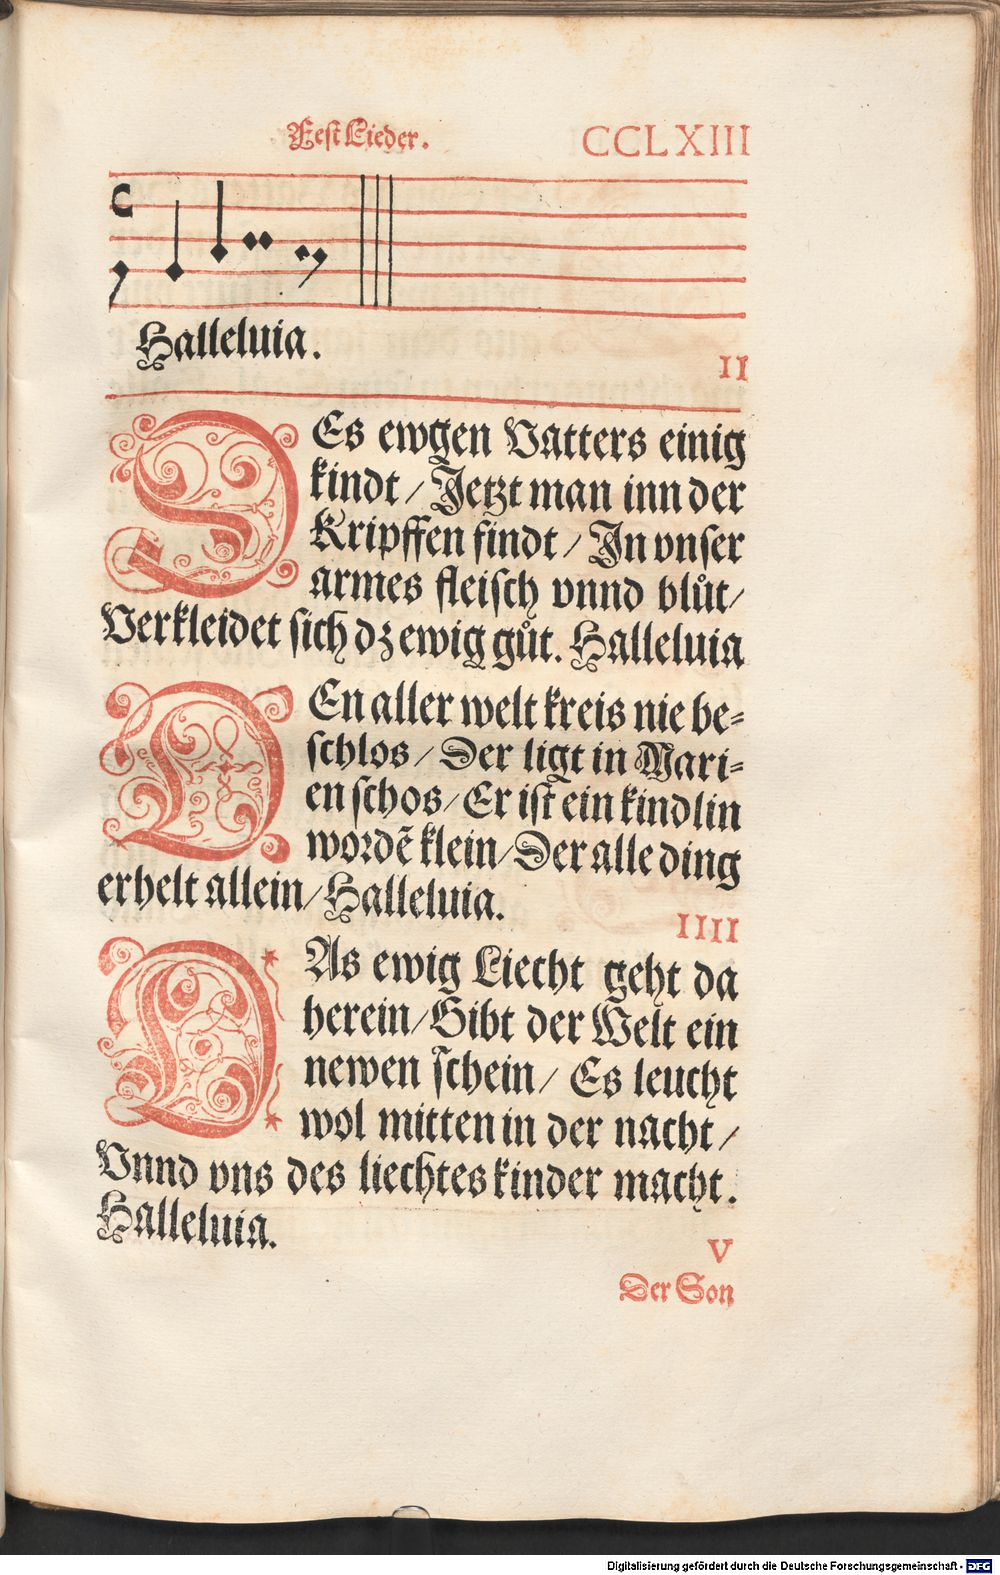 Fest Lieder. CCLXIII
Halleluia.
II
DEs ewgen Vatters einig
kindt / Jetzt man inn der
Kripffen findt / In vnser
armes fleisch vnnd blůt /
Verkleidet sich dz ewig gůt. Halleluia
DEn aller welt kreis nie be=
schlos / Der ligt in Mari=
en schos / Er ist ein kindlin
wordẽ klein / Der alle ding
erhelt allein / Halleluia.
IIII
DAs ewig Liecht geht da
herein / Gibt der Welt ein
newen schein / Es leucht
wol mitten in der nacht /
Vnnd vns des liechtes kinder macht.
Halleluia.
V
Der Son
Digitalisierung gefördert durch die Deutsche Forschungsgemeinschaft - DFG